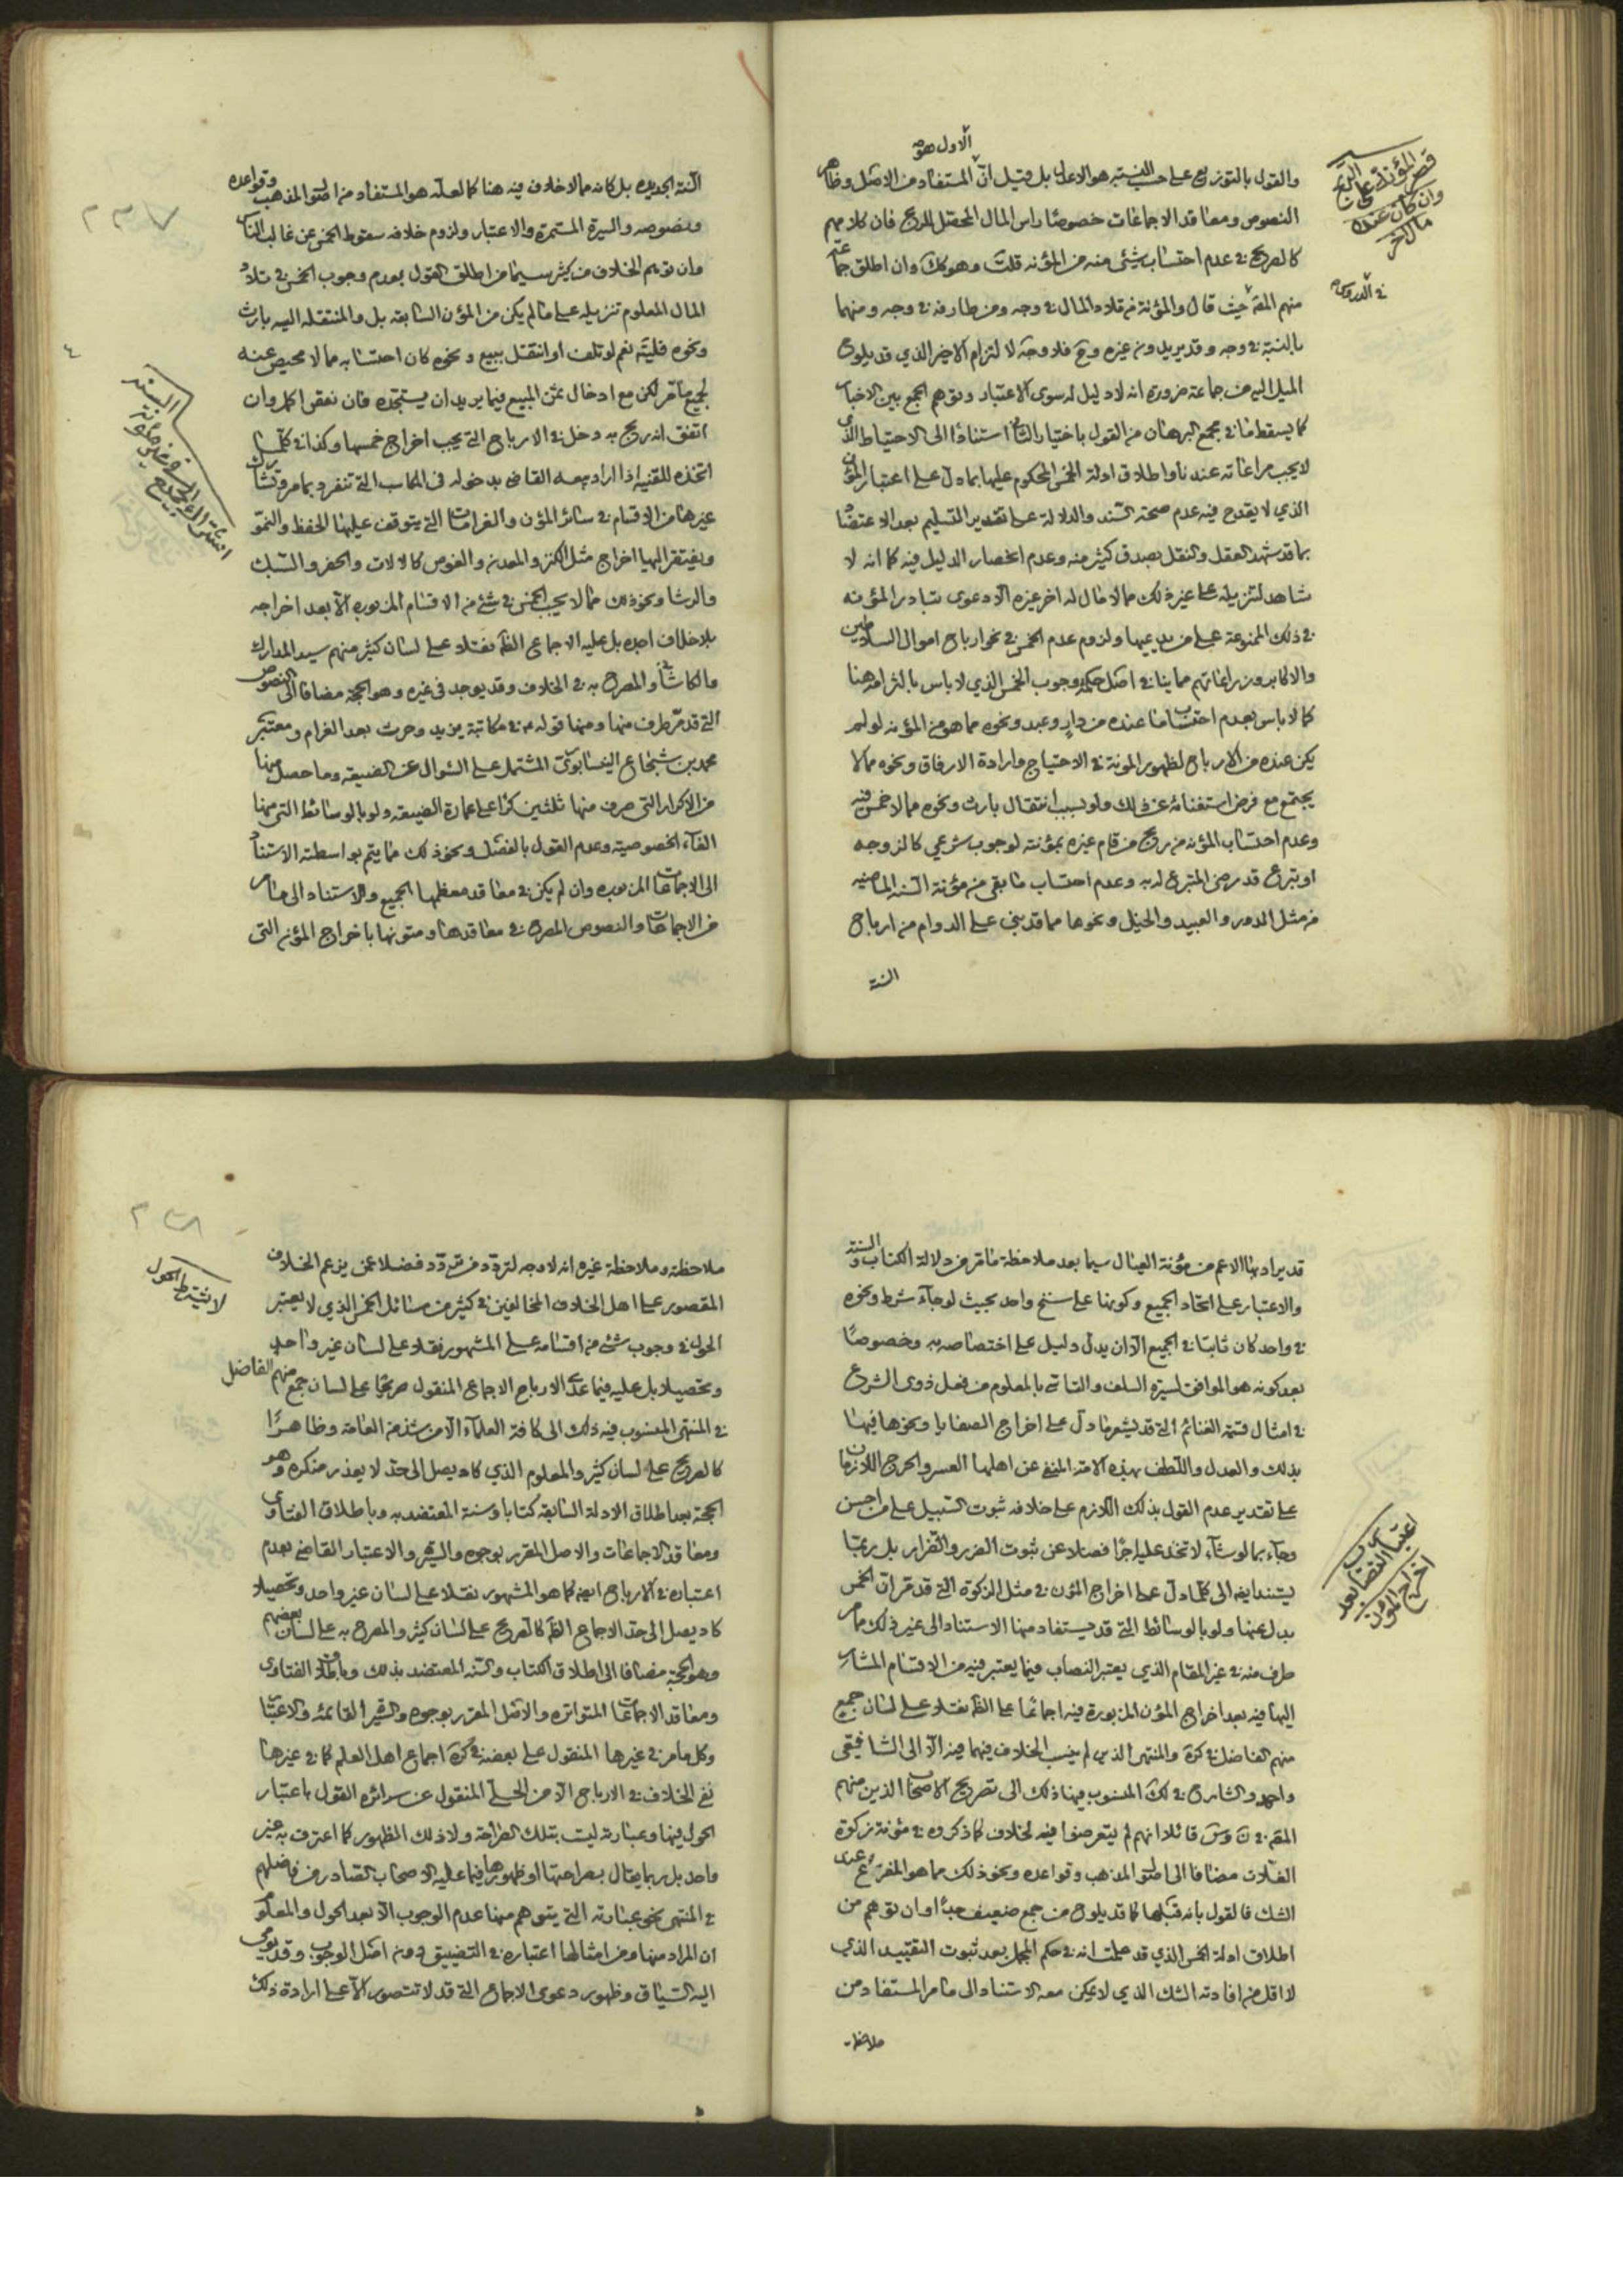 الاول هو
والقول بالتوزيع على حسب النسبة هو الاعدل بل قيل ان المستفاد من الاصل وظاهر
النصوص ومعاقد الاجماعات خصوصا راس المال المحصل للربح فان كلامهم
كالصريح في عدم احتساب شئ منه من المؤنه قلت وهو كك وان اطلق جماعة
منهم المقد حيث قال والمؤنة من تلاد المال في وجه ومن طارفه في وجه ومنهما
بالنسبة في وجه وقد يريد ومن غيره وح فلا وجه لالتزام الاخير الذي قد يلوح
الميل اليه من جماعة ضرورة انه لا دليل له سوى الاعتبار وتوهم الجمع بين الاخبار
كما يسقط ما في مجمع البرهان من القول باختيار الثاني استنادا الى الاحتياط الذي
لا يجب مراعاته عندنا واطلاق ادلة الخمس المحكوم عليها بما دل على اعتبار المؤن
الذي لا يقدح فيه عدم صحة السند والدلالة على تقدير التسليم بعد الاعتضاد
بما قد شهد العقل والنقل بصدق كثير منه وعدم انحصار الدليل فيه كما انه لا
شاهد لتنزيله على غير ذلك مما لا مال له اخر غيره الا دعوى تبادر المؤنه
في ذلك الممنوعة على من يدعيها ولزوم عدم الخمس في نحو ارباح اموال السلاطين
والاكابر وزراعاتهم مما ينافي اصل حكمة وجوب الخمس الذي لا باس بالتزامه هنا
كما لا باس بعدم احتساب ما عنده من دار وعبد ونحوه مما هو من المؤنه لو لم
يكن عنده من الارباح لظهور المونة في الاحتياج وارادة الارفاق ونحوه مما لا
يجتمع مع فرض استغنائه عن ذلك ولو بسبب انتقال بارث ونحوه مما لا خمس فيه
وعدم احتساب المؤنه من ربح من قام غيره بمؤنته لوجوب شرعي كالزوجه
او تبرع قد رضى المتبرع له به وعدم احتساب ما بقى من مؤنة السنه الماضيه
من مثل الدور والعبيد والخيل ونحوها مما قد بني على الدوام من ارباح
السنة
قصر المؤنة على الربح
وان كان عنده
مال اخر
في الدروس
السنة الجديده بل كانه مما لا خلاف فيه هنا كما لعله هو المستفاد من اصول المذهب وقواعده
ونصوصه والسيرة المستمرة والاعتبار ولزوم خلافه سقوط الخمس عن غالب الناس
وان توهم الخلاف من كثير سيما من اطلق القول بعدم وجوب الخمس في تلاد
المال المعلوم تنزيله على ما لم يكن من المؤن السابقه بل والمنتقله اليه بارث
ونحوه فليته نعم لو تلف او انتقل ببيع ونحوه كان احتسابه مما لا محيص عنه
لجميع ما مر لكن مع ادخال ثمن المبيع فيما يريد ان يستجده فان نقص اكمل وان
اتفق انه ربح به دخل في الارباح التي يجب اخراج خمسها وكذا في كلما
اتخذه للقنيه اذا اراد بيعه القاضي بدخوله في المكاسب التي تنفرد بما مر وتشارك
غيرها من الاقسام في سائر المؤن والغرامات التي يتوقف عليها الحفظ والنمو
ويفتقر اليها اخراج مثل الكنز والمعدن والغوص كالالات والحفر والسبك
والرشا ونحو ذلك مما لا يجب الخمس في شئ من الاقسام المزبوره الا بعد اخراجه
بلا خلاف اجده بل عليه الاجماع الظاهر نقلا على لسان كثير منهم سيد المدارك
والكاشاني والمصرح به في الخلاف وقد يوجد في غيره وهو الحجة مضافا الى النصوص
التي قد مر طرف منها ومنها قوله في مكاتبة يزيد وحرث بعد الغرام ومعتبر
محمد بن شجاع النيسابوري المشتمل على السؤال عن الضيعه وما حصل منها
من الاكرار التي صرف منها ثلثين كرا على عمارة الضيعه ولو بالوسائط التي منها
الغاء الخصوصية وعدم القول بالفصل ونحو ذلك مما يتم بواسطته الاستناد
الى الاجماعات المزبوره وان لم يكن في معاقد معظمها الجميع والاستناد الى ما مر
من الاجماعات والنصوص المصرح في معاقدها ومتونها باخراج المؤن التي
قد يراد بها الاعم من مؤنة العيال سيما بعد ملاحظة ما مر من دلالة الكتاب والسنة
والاعتبار على اتحاد الجميع وكونها على سنخ واحد بحيث لو جاء شرط ونحوه
في واحد كان ثابتا في الجميع الا ان يدل دليل على اختصاصه به وخصوصا
بعد كونه هو الموافق لسيرة السلف والتاسي بالمعلوم من فعل ذوى الشرع
في امثال قسمة الغنائم التي قد يشعر ما دل على اخراج الصفايا ونحوها فيها
بذلك والعدل واللطف بهذه الامة المنفي عن اهلها العسر والحرج اللازمان
على تقدير عدم القول بذلك اللازم على خلافه ثبوت السبيل على من احسن
وجاء بما لو شاء لاتخذ عليه اجرا فضلا عن ثبوت الضرر والضرار بل ربما
يستند ايضا الى كلما دل على اخراج المؤن في مثل الزكوة التي قد مر ان الخمس
بدل عنها ولو بالوسائط التي قد يستفاد منها الاستناد الى غير ذلك مما مر
طرف منه في غير المقام الذي يعتبر النصاب فيما يعتبر فيه من الاقسام المشار
اليها فيه بعد اخراج المؤن المزبورة فيه اجماعا على الظاهر نقلا على لسان جمع
منهم الفاضل في كره والمنتهى الذي لم ينسب الخلاف فيهما فيه الا الى الشافعي
واحمد والشارح في لك المنسوب فيها ذلك الى تصريح الاصحاب الذين منهم
المقد في ن وس قائلا انهم لم يتعرضوا فيه لخلاف كما ذكروه في مؤنة زكوة
الغلات مضافا الى اصول المذهب وقواعده ونحو ذلك مما هو المفزع عند
الشك فالقول بانه قبلها كما قد يلوح من جمع ضعيف جدا وان توهم من
اطلاق ادلة الخمس الذي قد علمت انه في حكم المجمل بعد ثبوت التقييد الذي
لا اقل من افادته الشك الذي لا يمكن معه الاستناد الى ما مر المستفاد من
ملاحظة
اعتبار النصاب بعد
اخراج المؤن
ملاحظته وملاحظة غيره انه لا وجه لتردد من تردد فضلا عمن يزعم الخلاف
المقصور على اهل الخلاف المخالفين في كثير من مسائل الخمس الذي لا يعتبر
الحول في وجوب شئ من اقسامه على المشهور نقلا على لسان غير واحد
وتحصيلا بل عليه فيما عدى الارباح الاجماع المنقول صريحا على لسان جمع منهم الفاضل
في المنتهى المنسوب فيه ذلك الى كافة العلماء الا من شذ من العامة وظاهرا
كالصريح على لسان كثير والمعلوم الذي كاد يصل الى حد لا يعذر منكره وهو
الحجة بعد اطلاق الادلة السابقه كتابا وسنة المعتضد به وباطلاق الفتاوى
ومعاقد الاجماعات والاصل المقرر بوجوه والسيرة والاعتبار القاضي بعدم
اعتباره في الارباح ايضا كما هو المشهور نقلا على لسان غير واحد وتحصيلا
كاد يصل الى حد الاجماع الظاهر كالصريح على لسان كثير والمصرح به على لسان بعضهم
وهو الحجة مضافا الى اطلاق الكتاب والسنه المعتضد بذلك وباطلاق الفتاوى
ومعاقد الاجماعات المتواتره والاصل المقرر بوجوه والسيرة القائمه والاعتبار
وكل ما مر في غيرها المنقول على بعضه في كره اجماع اهل العلم كما في غيرها
نفي الخلاف في الارباح الا من الحلي المنقول عن سرائره القول باعتبار
الحول فيها وعبارته ليست بتلك الصراحة ولا ذلك الظهور كما اعترف به غير
واحد بل ربما يقال بصراحتها او ظهورها فيما عليه الاصحاب الصادر من فاضلهم
في المنتهى نحو عبارته التي يتوهم منها عدم الوجوب الا بعد الحول والمعلوم
ان المراد منها ومن امثالها اعتباره في التضييق دون اصل الوجوب وقد يومى
اليه السياق وظهور دعوى الاجماع التي قد لا تتصور الا على ارادة ذلك
لا يشترط الحول